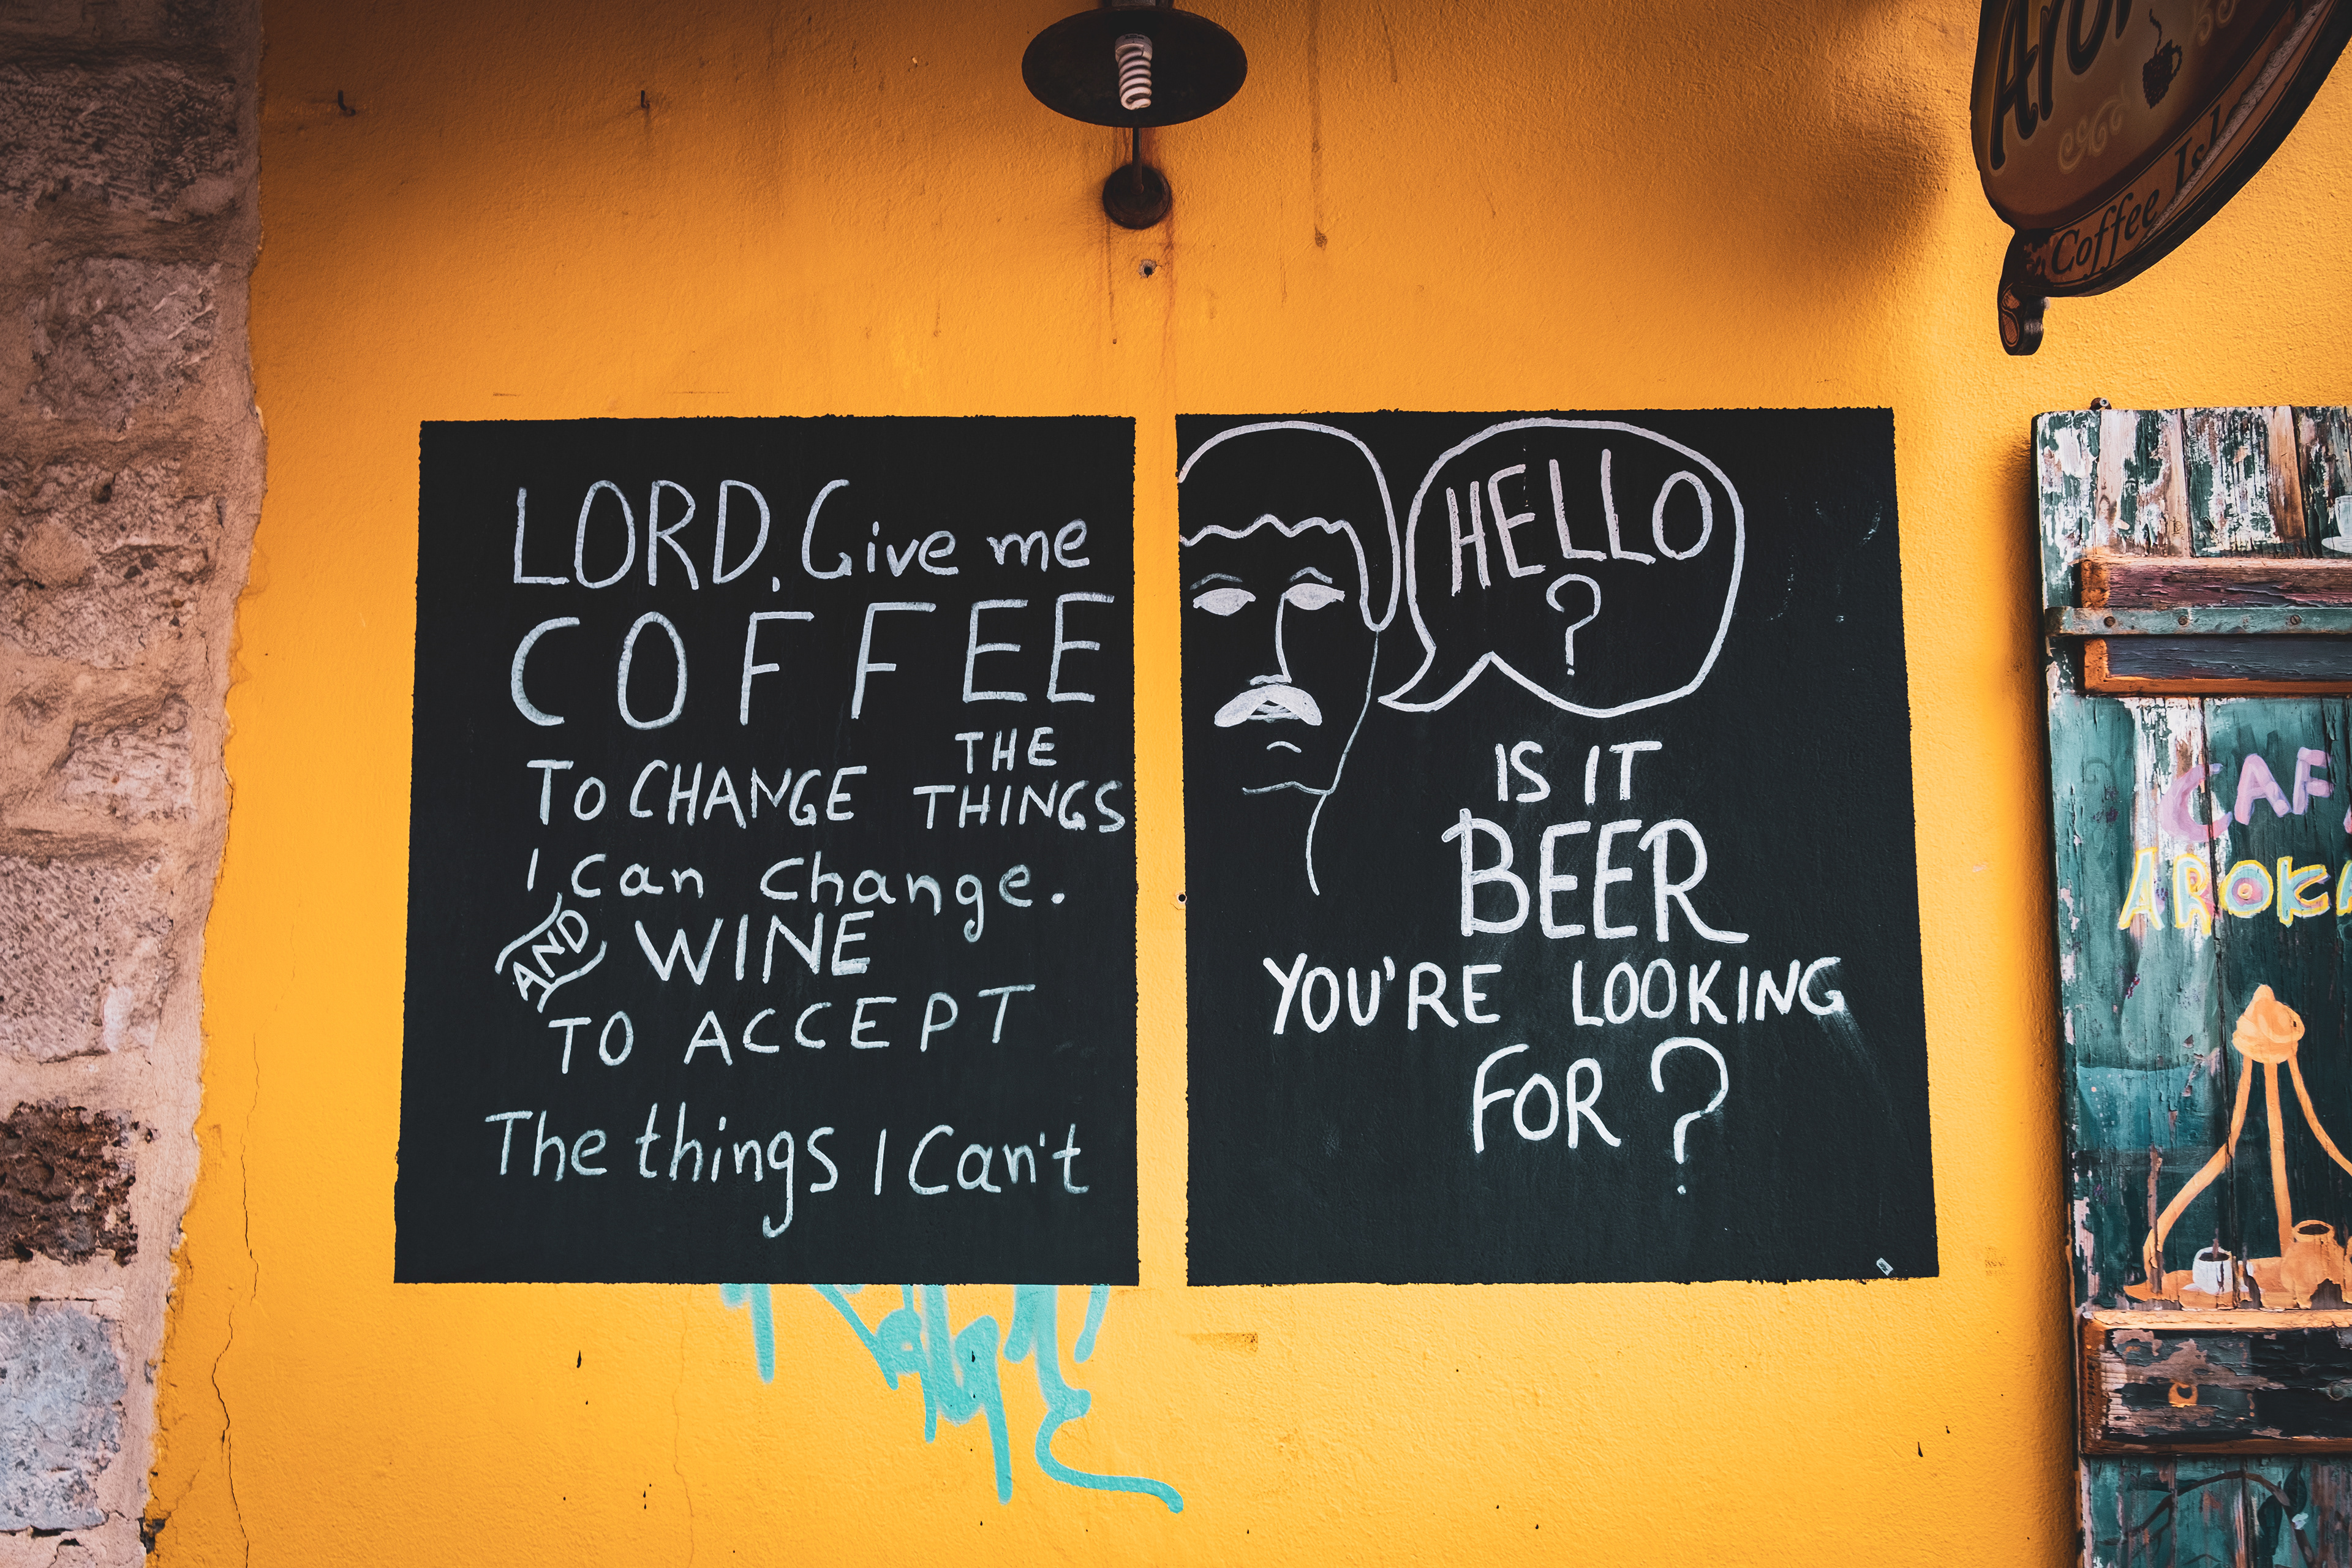 LORD, Give me
COFFEE
TO CHANGE THE THINGS
I can change.
AND WINE
TO ACCEPT
The things I Can't
HELLO
?
IS IT
BEER
YOU'RE LOOKING
FOR?
Coffee